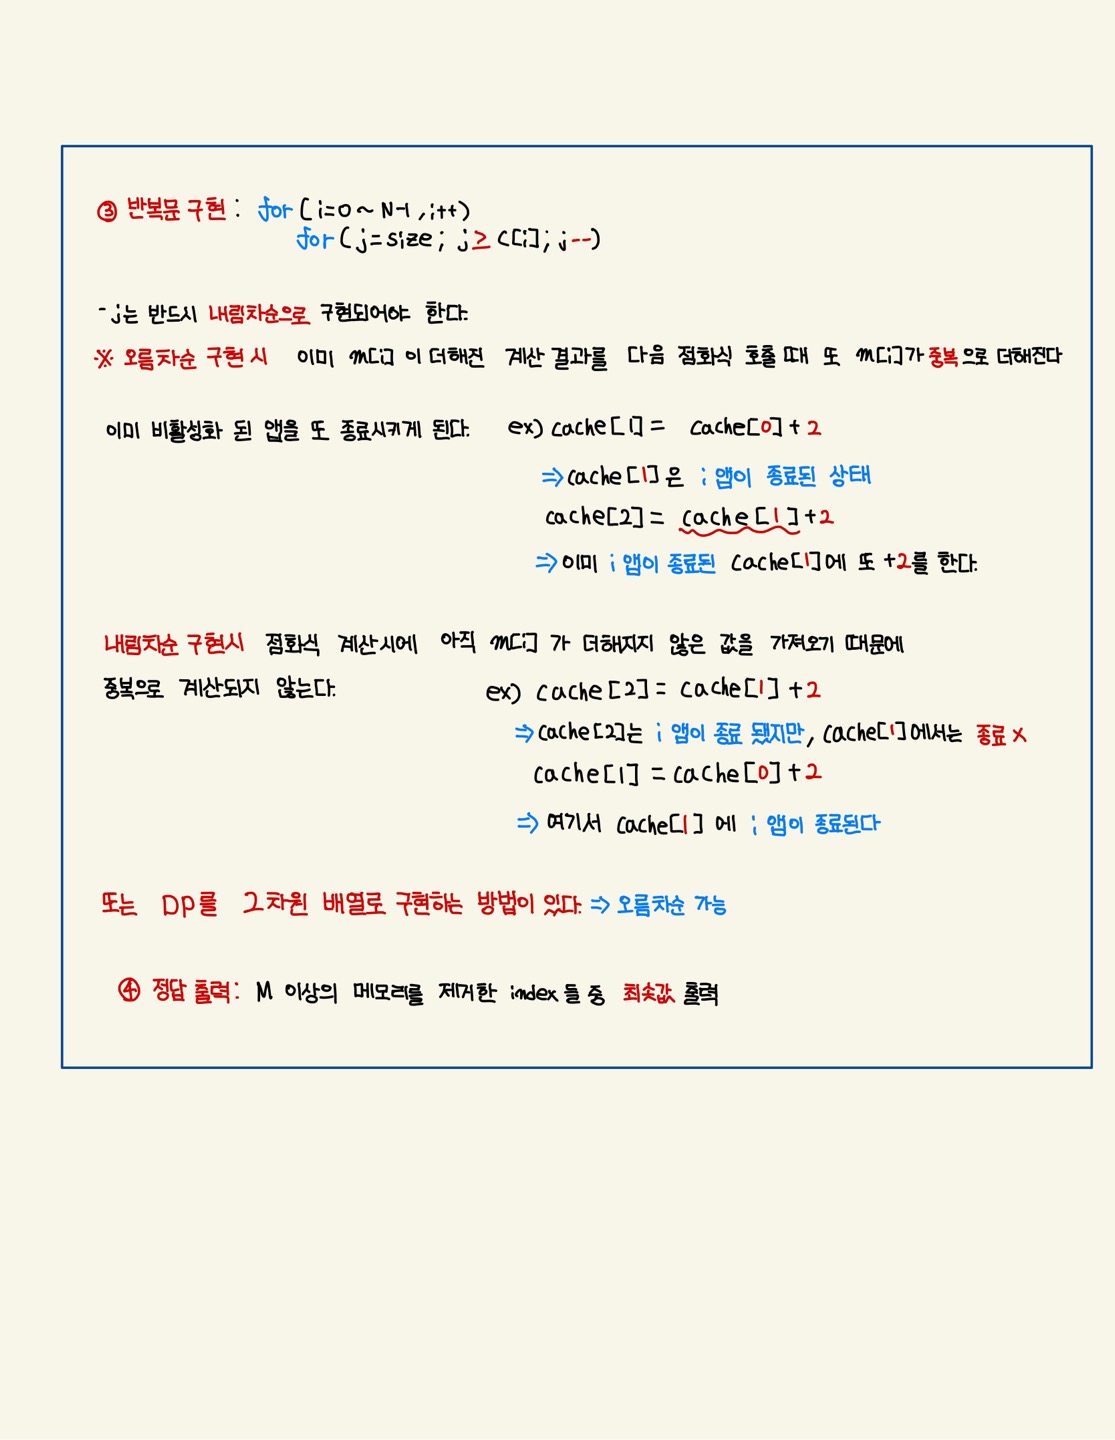 ③ 반복문 구현 : for (i=0 ~ N-1, i++)
for (j=size; j≥c[i]; j--)
- j는 반드시 내림차순으로 구현되어야 한다.
※ 오름차순 구현 시 이미 m[i] 이 더해진 계산 결과를 다음 점화식 호출 때 또 m[i]가 중복으로 더해진다
이미 비활성화 된 앱을 또 종료시키게 된다. ex) cache[1] = cache[0] + 2
⇒ cache[1]은 i 앱이 종료된 상태
cache[2] = cache[1] + 2
⇒ 이미 i 앱이 종료된 cache[1]에 또 +2를 한다.
내림차순 구현시 점화식 계산시에 아직 m[i] 가 더해지지 않은 값을 가져오기 때문에
중복으로 계산되지 않는다. ex) cache[2] = cache[1] + 2
⇒ cache[2]는 i 앱이 종료 됐지만, cache[1]에서는 종료 x
cache[1] = cache[0] + 2
⇒ 여기서 cache[1] 에 i 앱이 종료된다
또는 DP를 2차원 배열로 구현하는 방법이 있다. ⇒ 오름차순 가능
④ 정답 출력 : M 이상의 메모리를 제거한 index 들 중 최솟값 출력